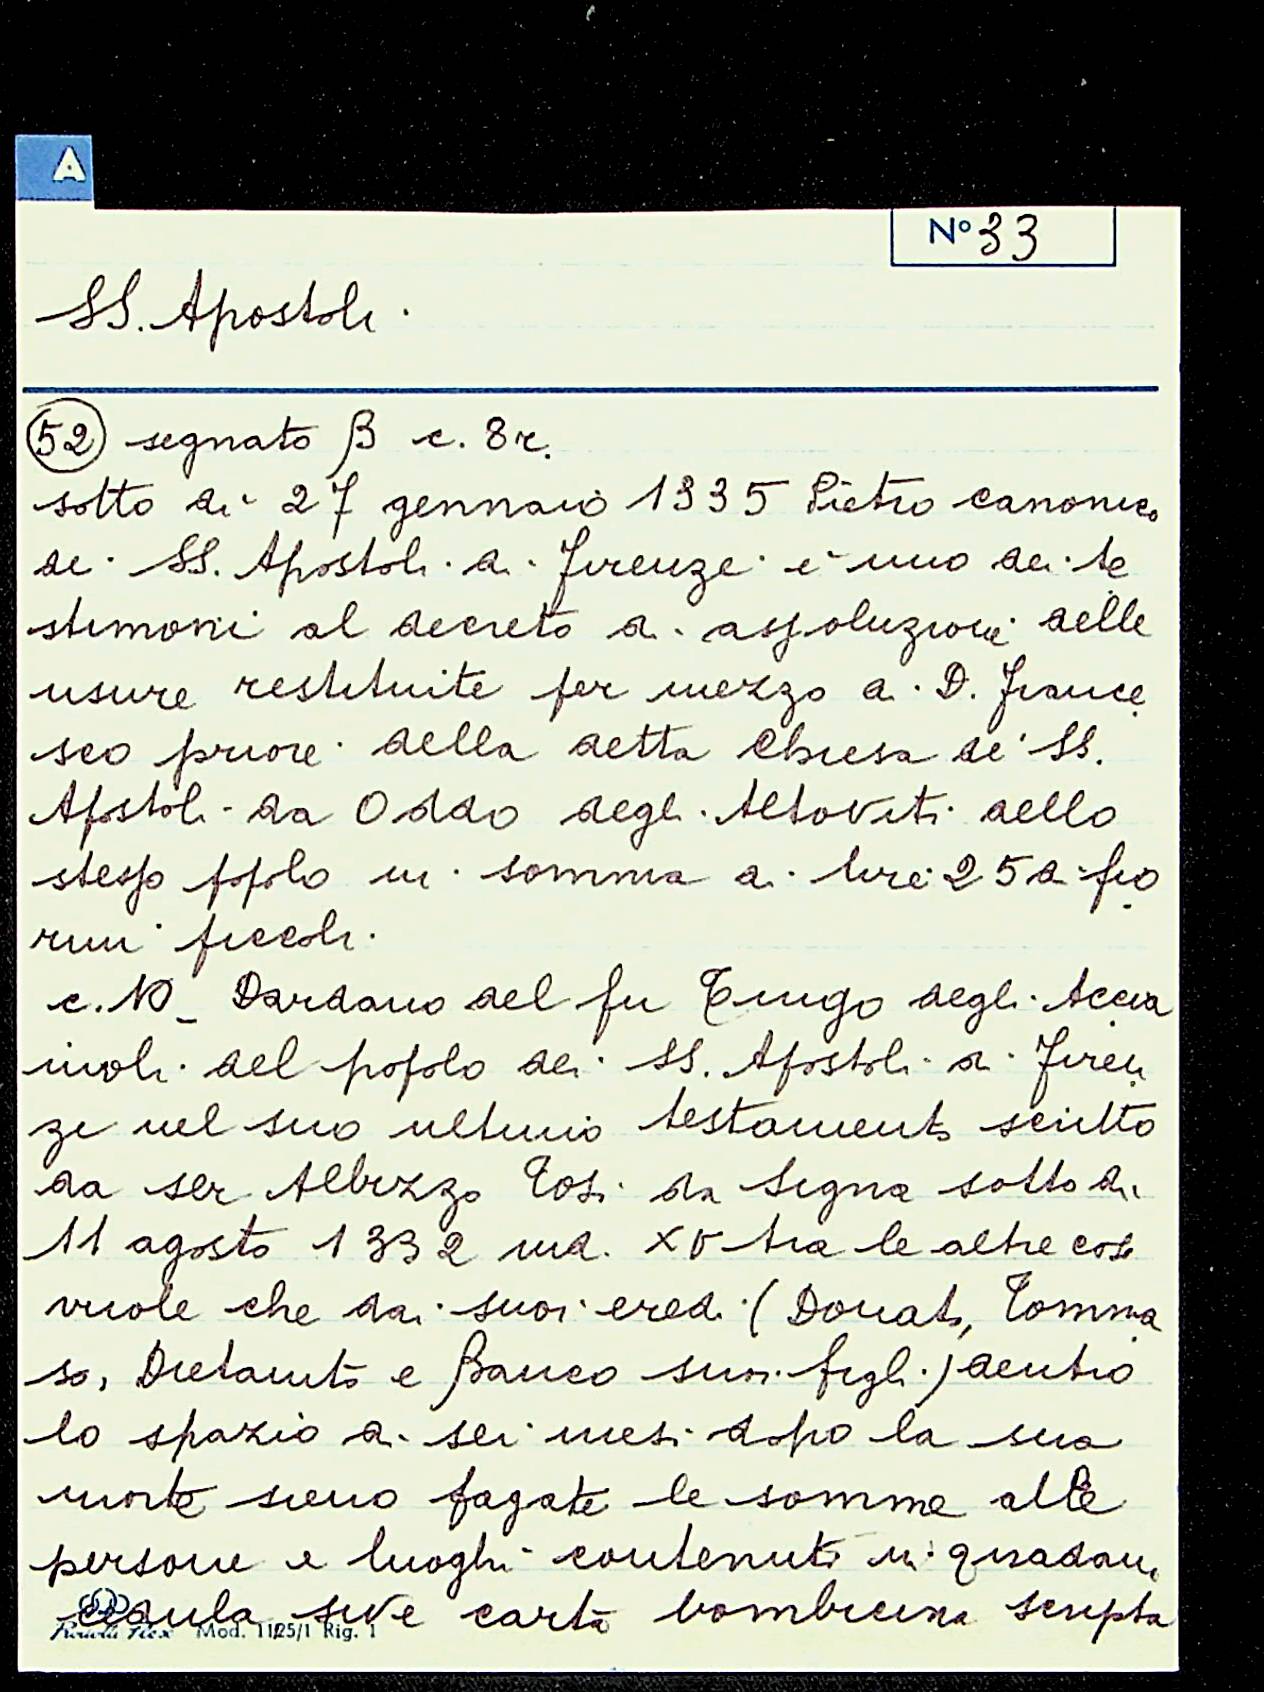 A
N° 33
SS. Apostoli.
52 segnato β c. 8r.
sotto dì 27 gennaio 1335 Pietro canonico
dei SS. Apostoli di Firenze è uno dei te
stimoni al decreto di assoluzione delle
usure restituite per mezzo di D. France
sco priore della detta Chiesa de' SS.
Apostoli da Oddo degli Altoviti dello
stesso popolo in somma di lire 25 di fio
rini piccoli.
c. 10_ Dardano del fu Tingo degli Accia
iuoli del popolo dei SS. Apostoli di Firen
ze nel suo ultimo testamento scritto
da ser Albizzo Tosi da Signa sotto dì
11 agosto 1332 ind. XV tra le altre cose
vuole che dai suoi eredi (Donato, Tomma
so, Dietaiuto e Banco suoi figli) dentro
lo spazio di sei mesi dopo la sua
morte sieno pagate le somme alle
persone e luoghi contenuti in quadam
cedula sive carta bombicina scripta
Mod. 1125/1 Rig. 1